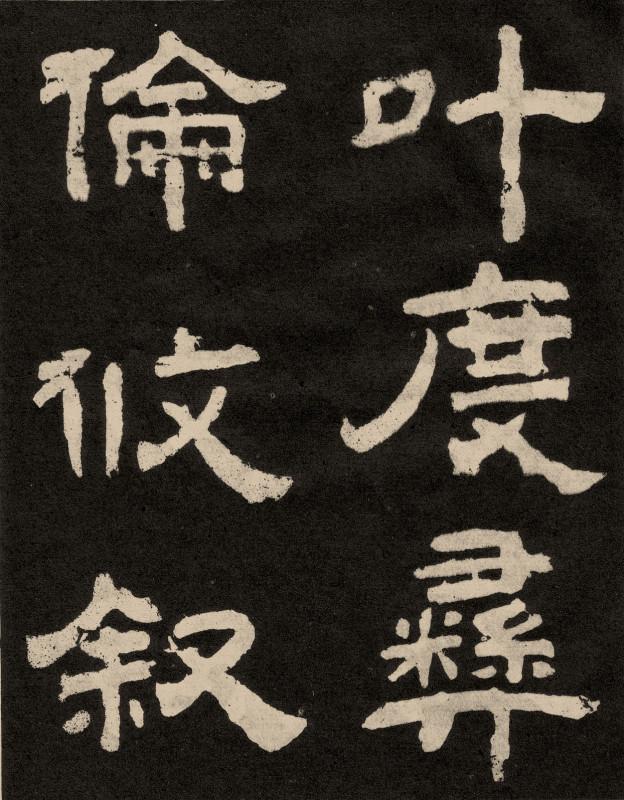 叶度彝
倫攸叙